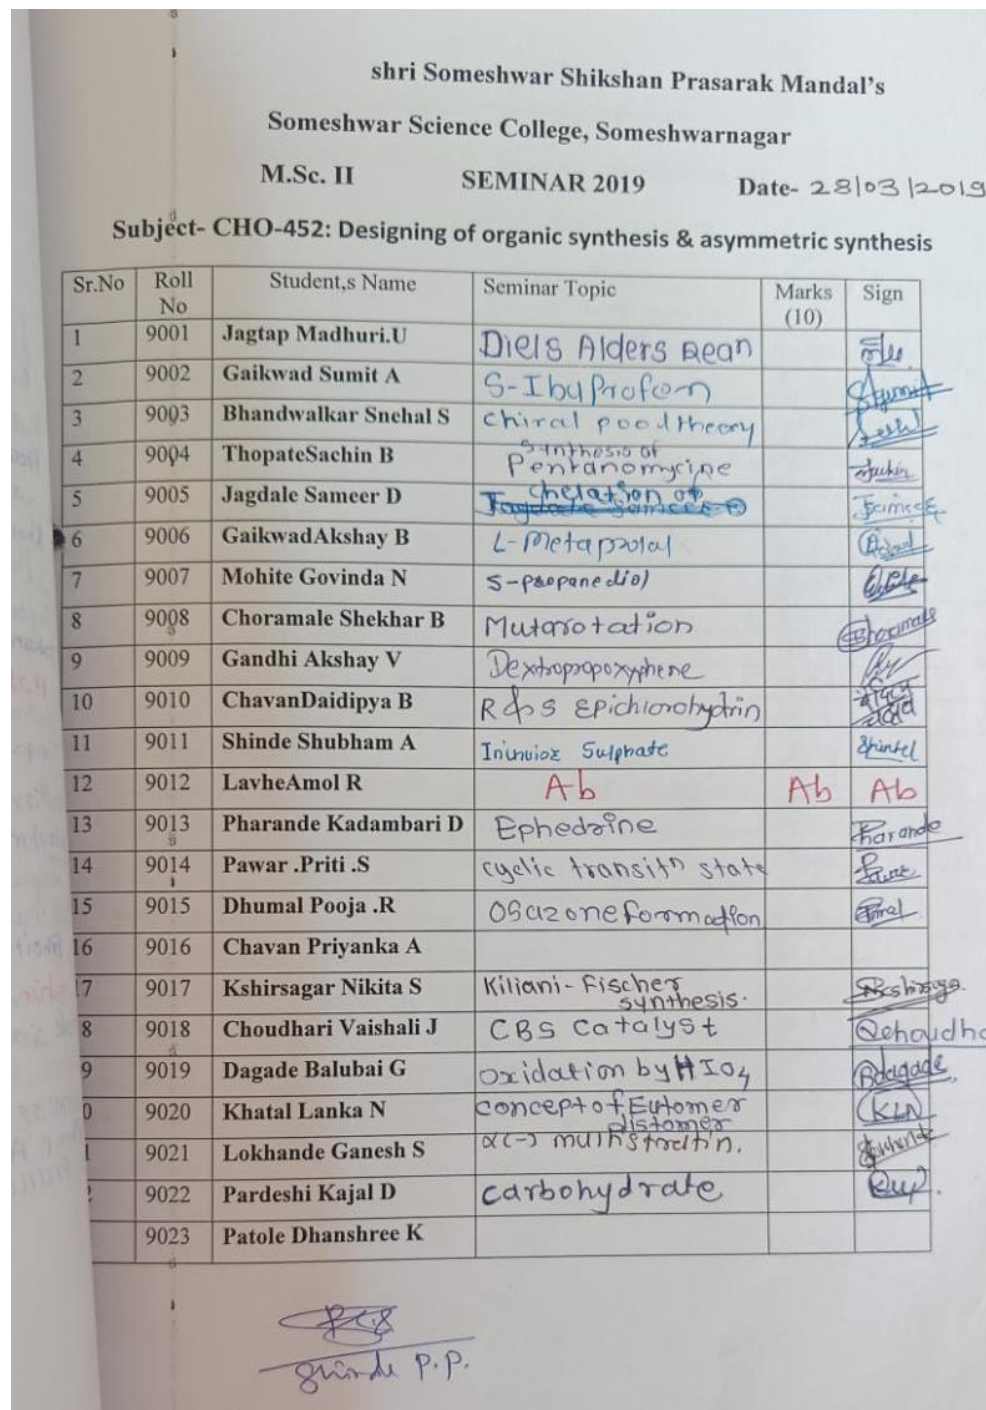 shri Someshwar Shikshan Prasarak Mandal's
Someshwar Science College, Someshwarnagar
M.Sc. II SEMINAR 2019 Date- 28/03/2019
Subject- CHO-452: Designing of organic synthesis & asymmetric synthesis
Sr.No Roll No Student,s Name Seminar Topic Marks (10) Sign
1 9001 Jagtap Madhuri.U Diels Alders Rean
2 9002 Gaikwad Sumit A S-Ibuprofen Sumit
3 9003 Bhandwalkar Snehal S chiral pool theory
4 9004 ThopateSachin B Synthesis of Pentanomycine Sachin
5 9005 Jagdale Sameer D chelation of
6 9006 GaikwadAkshay B L-Metaprolal
7 9007 Mohite Govinda N S-propanediol
8 9008 Choramale Shekhar B Mutarotation
9 9009 Gandhi Akshay V Dextropropoxyphene
10 9010 ChavanDaidipya B R & S Epichlorohydrin
11 9011 Shinde Shubham A Sulphate
12 9012 LavheAmol R Ab Ab Ab
13 9013 Pharande Kadambari D Ephedrine Pharande
14 9014 Pawar .Priti .S cyclic transitn state
15 9015 Dhumal Pooja .R Osazone formation
16 9016 Chavan Priyanka A
7 9017 Kshirsagar Nikita S Kiliani-Fischer synthesis.
8 9018 Choudhari Vaishali J CBS Catalyst
9 9019 Dagade Balubai G oxidation by HIO4 Bdagade
0 9020 Khatal Lanka N concept of Eutomer distomer KLN
9021 Lokhande Ganesh S
9022 Pardeshi Kajal D carbohydrate
9023 Patole Dhanshree K
Shinde P.P.